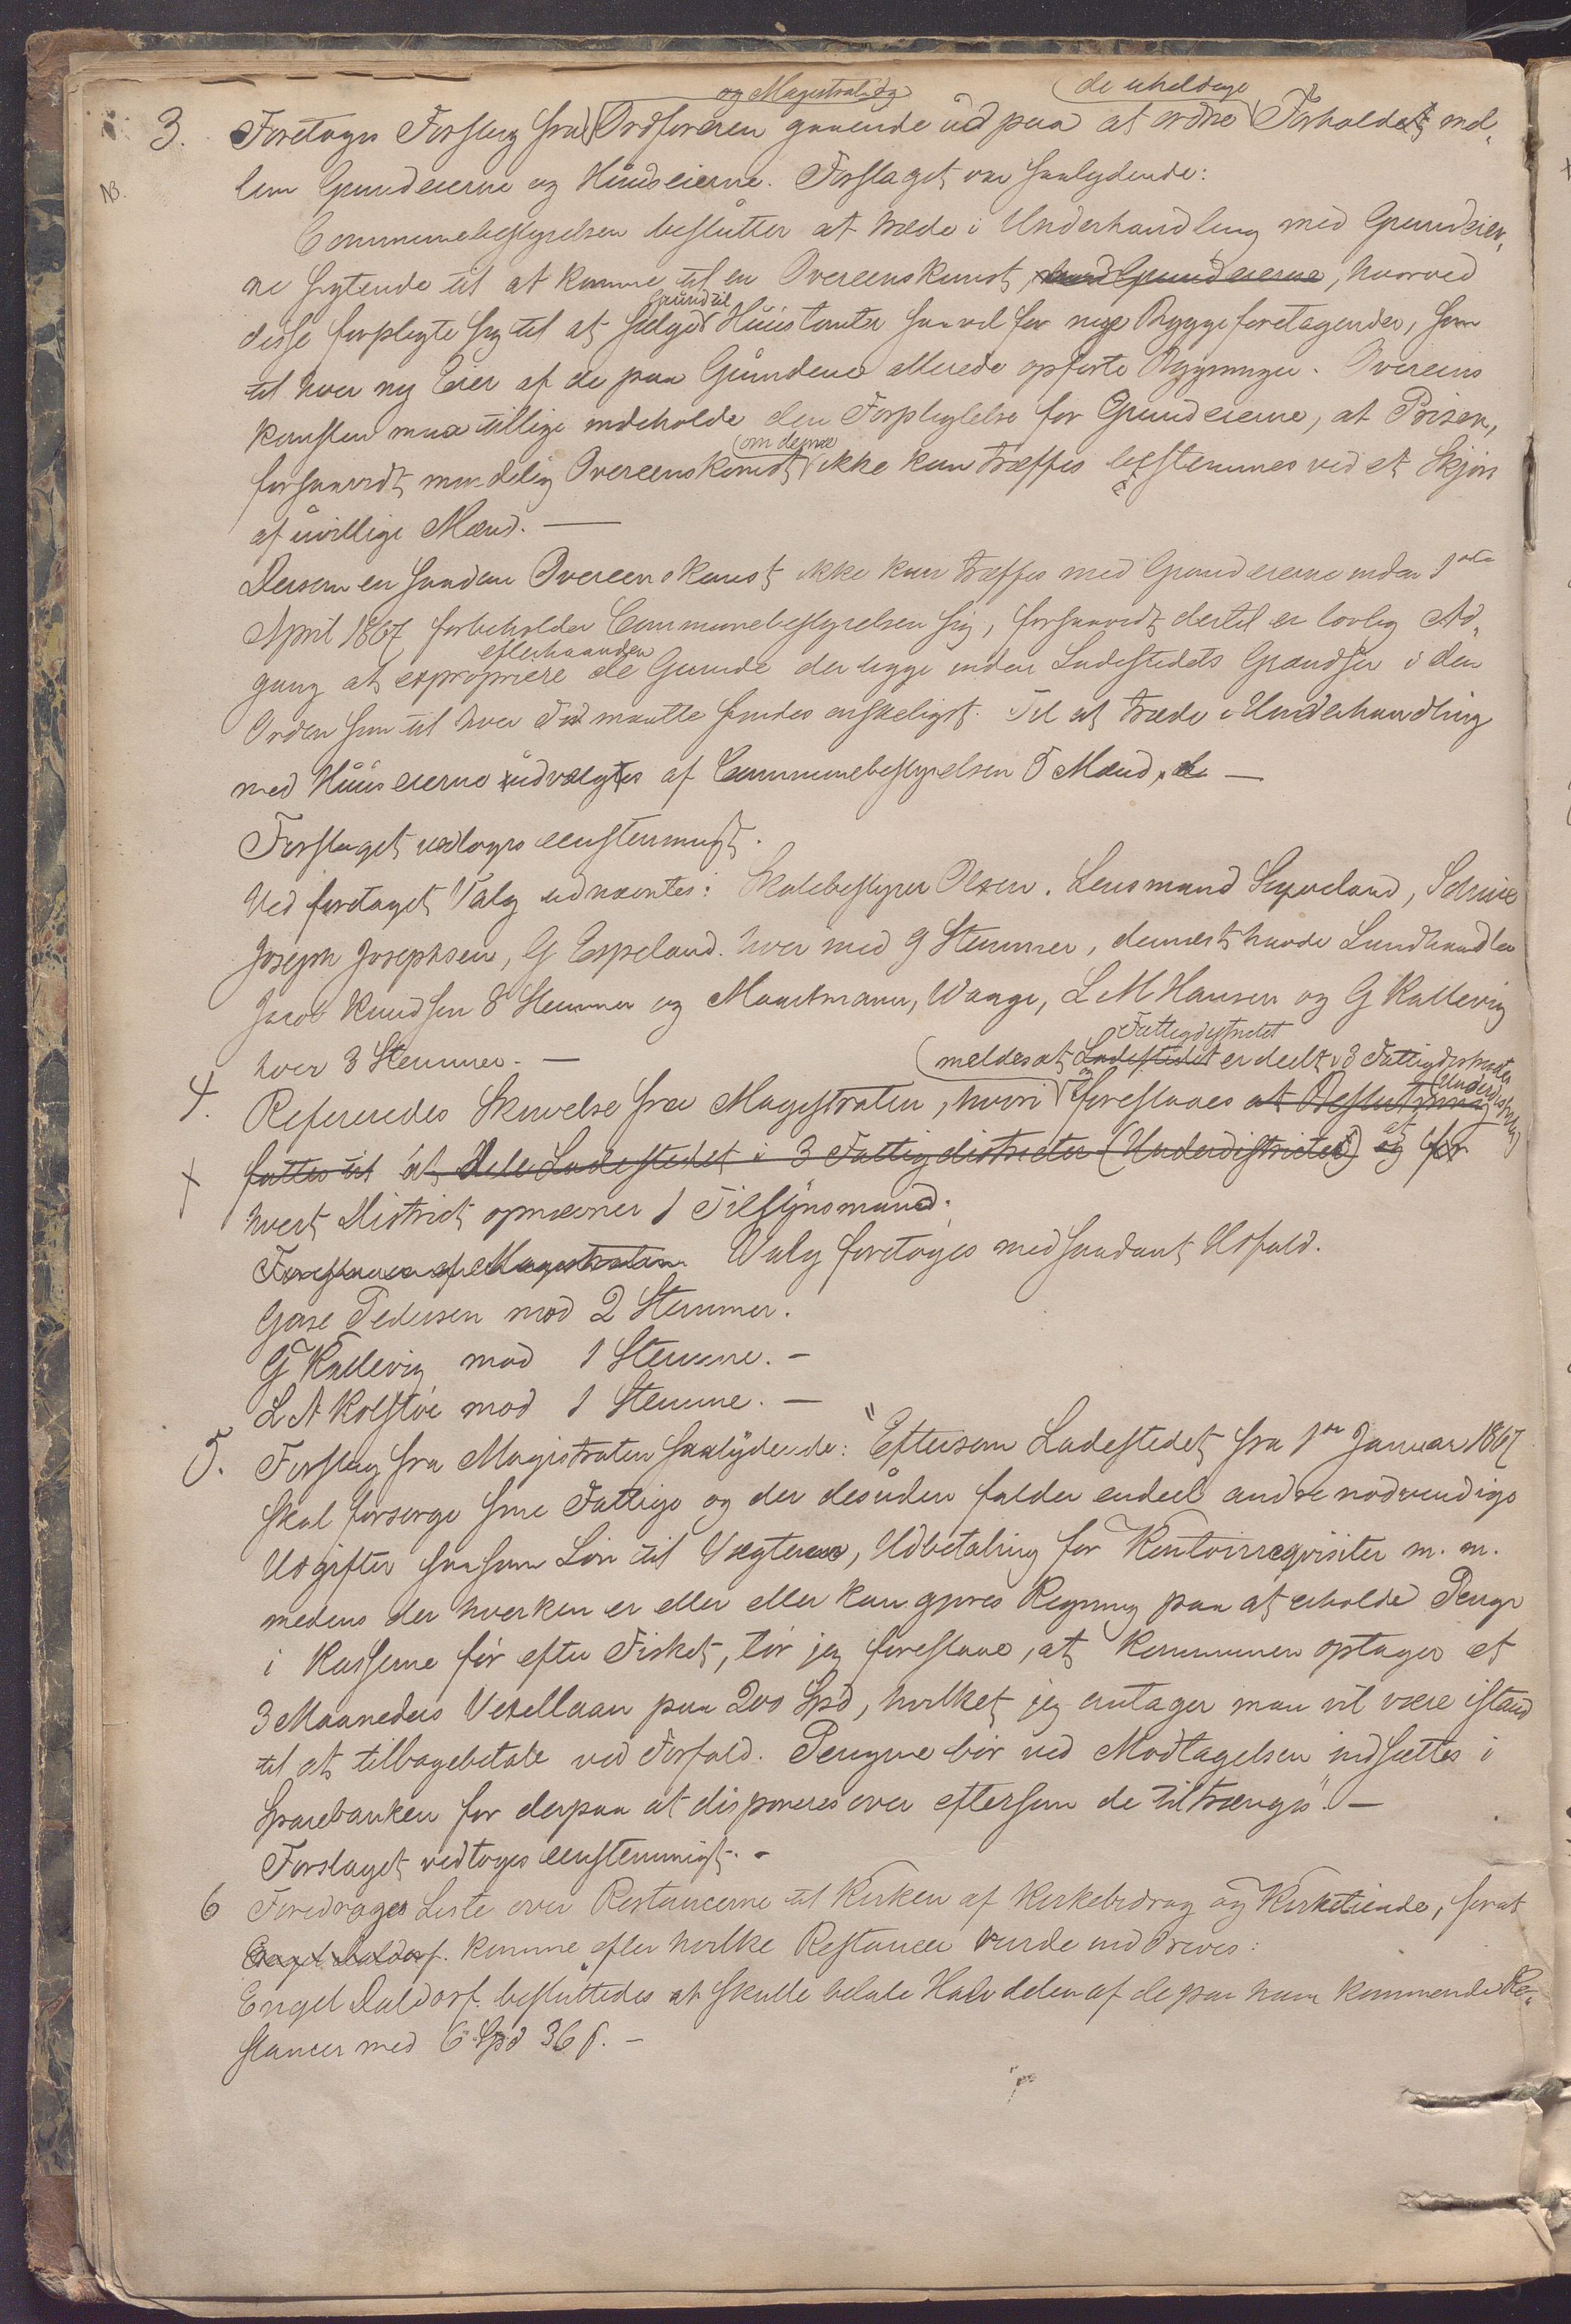 og Magistraten de uheldige
3. Foretoges Forslag fra Ordføreren gaaende ud paa at ordne Forholdet mel-
NB. lem Grundeierne og Huuseierne. Forslaget var saalydende:
Communebestyrelsen beslutter at træde i Underhandling med Grundeier-
ne sigtende til at komme til en Overeenskomst, med Grundeierne, hvorved
Grund til
disse forpligte sig til at sælge Huustomter saavel for nye Byggeforetagender, som
til hver ny Eier af de paa Grundene allerede opførte Bygninger. Overeens
komsten maa tillige indeholde den Forpligtelse for Grundeierne, at Prisen,
om denne
forsaavidt mindelig Overeenskomst ikke kan træffes bestemmes ved et Skjøn
af uvillige Mænd. —
Dersom en saadan Overeenskomst ikke kan træffes med Grundeierne inden 1ste
April 1867 forbeholder Communebestyrelsen sig, forsaavidt dertil er lovlig Ad-
efterhaanden
gang at expropriere de Grunde der ligge inden Ladestedets Grændser i den
Orden som til hver Tid maatte findes ønskeligst. Til at træde i Underhandling
med Huuseierne udvalgtes af Communebestyrelsen 5 Mænd, —
Forslaget vedtoges eenstemmigt.
Ved foretaget Valg udnævntes: Skolebestyrer Olsen. Lensmand
Joseph Josephsen, G Espeland. hver med 9 Stemmer, dernæst havde Landhandler
Jacob Knudsen 8 Stemmer og Maartmann, Waage, L M Hansen og G Kallevig
Fattigdistrictet
hver 3 Stemmer. — meldes at Ladestedet er deelt i 3 Fattigdistricter
(Underdistricter)
4. Refereredes Skrivelse fra Magistraten, hvori og foreslaaes at Beslutning
at
fattes til at dele Ladestedet i 3 Fattigdistricter (Underdistricter) og for
hvert District opnævner 1 Tilsynsmand.
Foreslaaes af Magistraten Valg foretoges med saadant Udfald.
Gase Pedersen mod 2 Stemmer.
G Kallevig mod 1 Stemme. —
L A Kolstøe mod 1 Stemme. —
5. Forslag fra Magistraten saalydende: "Eftersom Ladestedet fra 1ste Januar 1867
skal forsørge sine Fattige og der desuden falder endeel andre nødvendige
Udgifter saasom Løn til Vægterne, Udbetaling for Kontoirreqvisiter m. m.
medens der hverken er eller eller kan gjøres Regning paa at erholde Penge
i Kasserne før efter Fisket, tør jeg foreslaae, at Kommunen optager et
3 Maaneders Vexellaan paa 200 Spd, hvilket jeg antager man vil være istand
til at tilbagebetale ved Forfald. Pengene bør ved Modtagelsen indsættes i
Sparebanken for derpaa at disponeres over eftersom de tiltrænges". —
Forslaget vedtoges eenstemmigt. -
6 Foredroges Liste over Restancerne til Kirken af Kirkebidrag og Kirketiende, forat
Engel Daldorf. kunne efter hvilke Restancer burde inddrives:
Engel Daldorf. besluttedes at skulle betale Halvdelen af de paa ham kommende Re-
stancer med 6 Spd 36 s. —